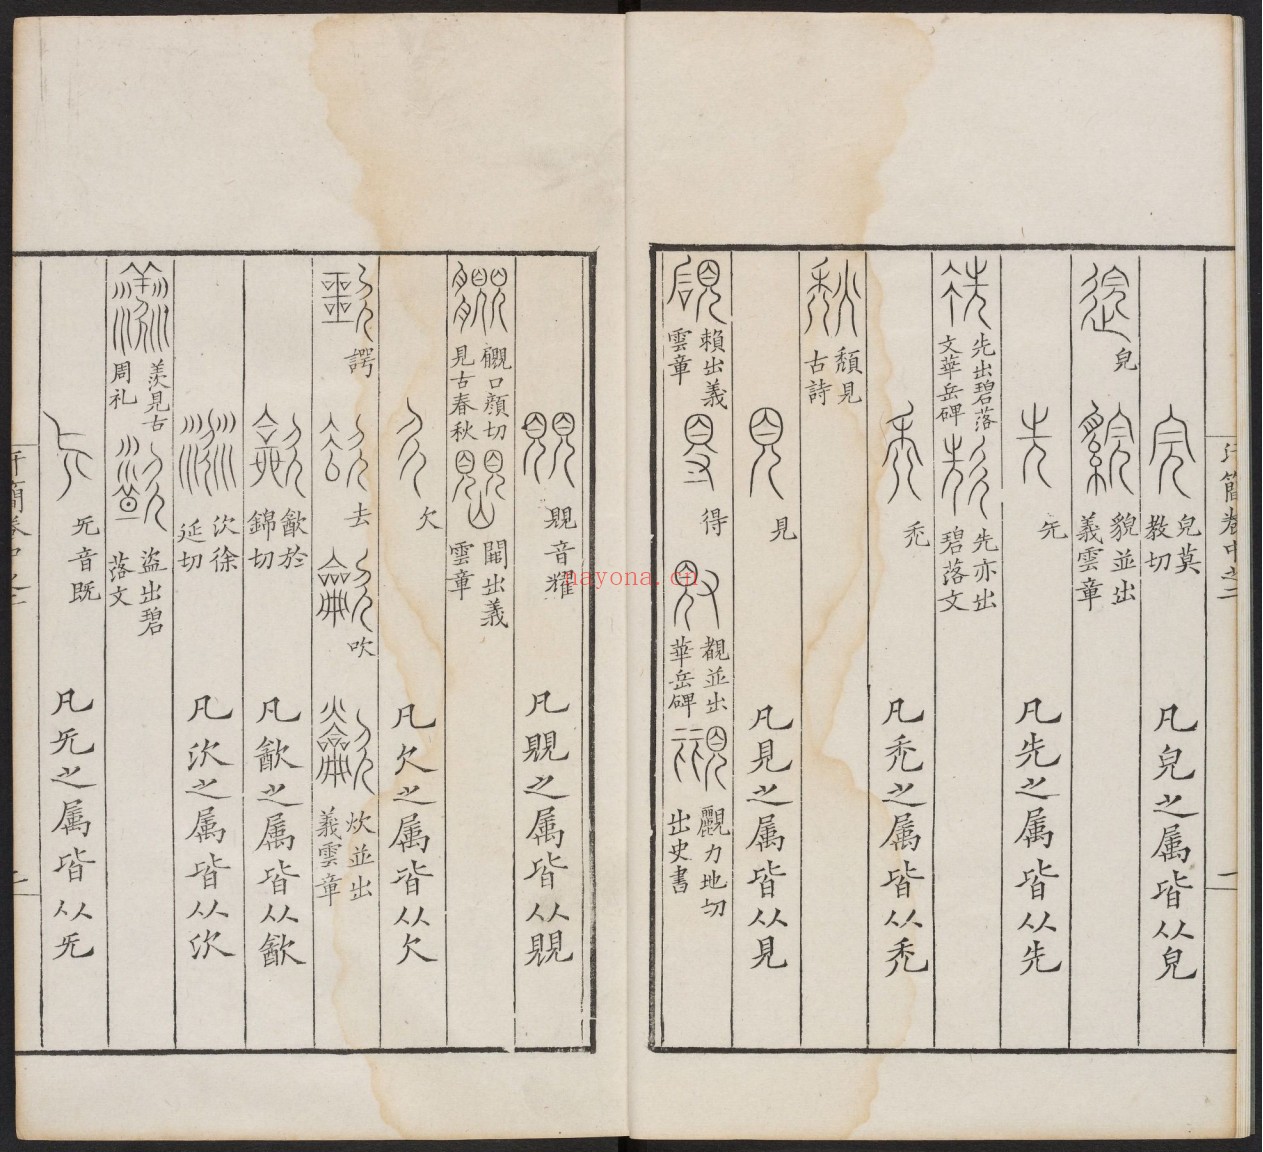 汗簡卷中之二
皃莫教切
凡皃之属皆从皃
皃
貌並出義雲章
凡先之属皆从先
先出碧落文華岳碑
先亦出碧落文
禿
凡禿之属皆从禿
頹見古詩
見
凡見之属皆从見
賴出義雲章
得
覩並出華岳碑
覼力地切出史書
覞音耀
凡覞之属皆从覞
覶口顔切見古春秋
䦎出義雲章
欠
凡欠之属皆从欠
諤
去
吹
炊並出義雲章
㱃於錦切
凡㱃之属皆从㱃
㳄徐延切
凡㳄之属皆从㳄
羨見古周礼
盜出碧落文
旡音既
凡旡之属皆从旡
nayona.cn